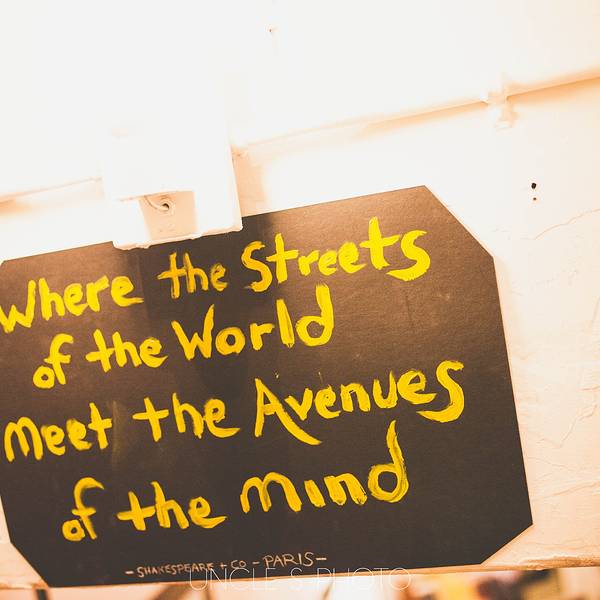 Where the Streets
of the World
Meet the Avenues
of the mind
- SHAKESPEARE + CO - PARIS -
UNCLE S PHOTO